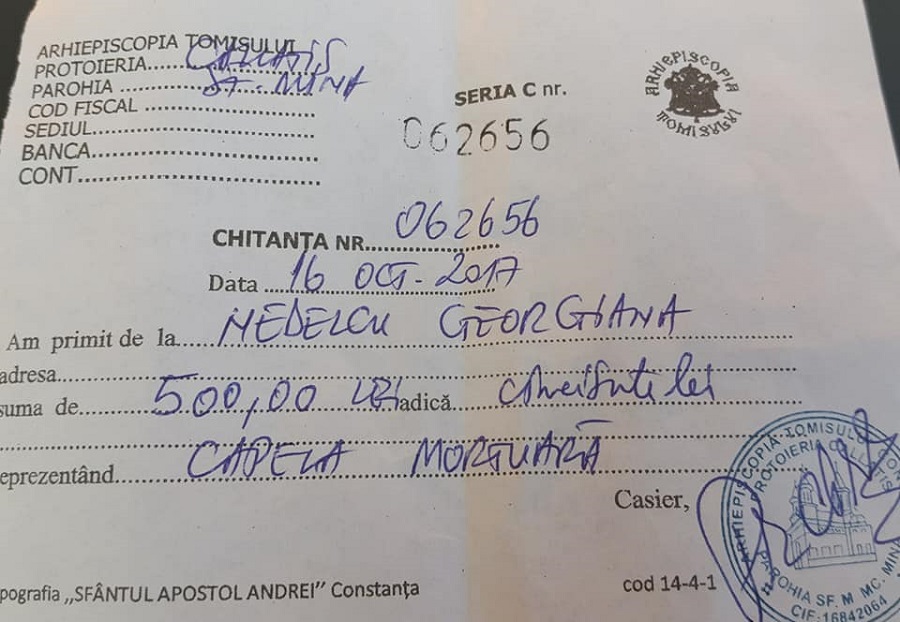 ARHIEPISCOPIA TOMISULUI
PROTOIERIA.....CALLATIS
PAROHIA ..........SF. MINA
COD FISCAL ..........................
SEDIUL..................................
BANCA...................................
CONT.....................................
SERIA C nr.
062656
ARHIEPISCOPIA TOMISULUI
CHITANȚA NR. 062656
Data ... 16 OCT. 2017
Am primit de la.... NEDELCU GEORGIANA
adresa..................
suma de........ 500,00 LEI adică.... cincisute lei
eprezentând........ CAPELA MORTUARĂ
Casier,
ARHIEPISCOPIA TOMISULUI
PROTOIERIA CALLATIS
PAROHIA SF. M MC. MINA
CIF:16842064
pografia „SFÂNTUL APOSTOL ANDREI” Constanța
cod 14-4-1